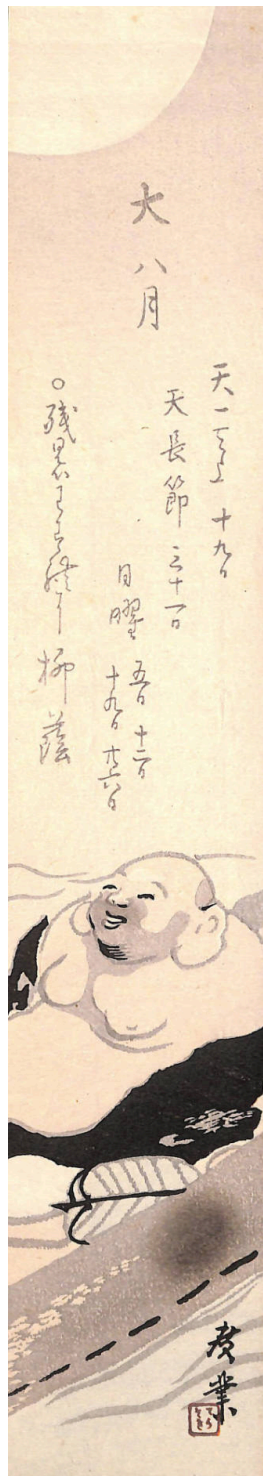 大 八月
天一天上 十九日
天長節 三十一日
日曜 五日 十二日
十九日 廿六日
○残暑 柳蔭
廣業